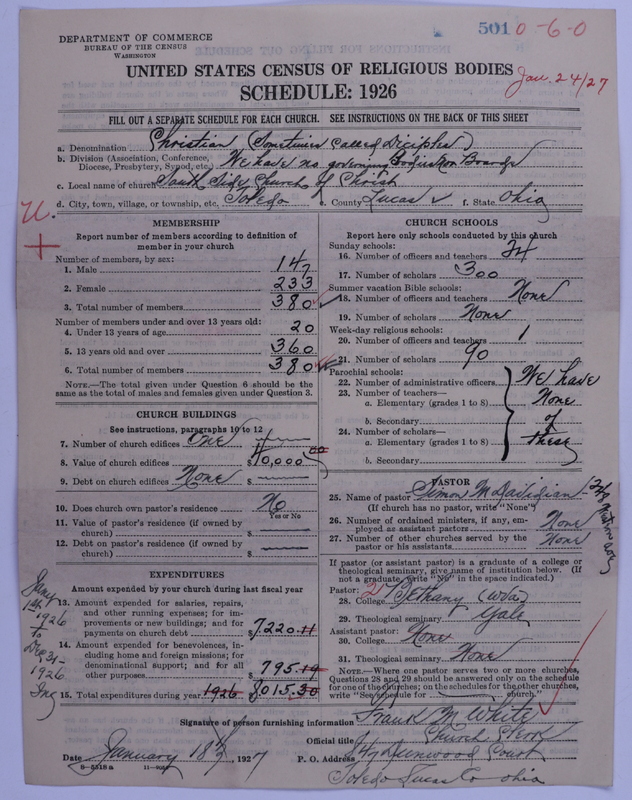 5010-6-0
DEPARTMENT OF COMMERCE
BUREAU OF THE CENSUS
WASHINGTON
UNITED STATES CENSUS OF RELIGIOUS BODIES
Jan. 24/27
SCHEDULE: 1926
FILL OUT A SEPARATE SCHEDULE FOR EACH CHURCH. SEE INSTRUCTIONS ON THE BACK OF THIS SHEET
a. Denomination Christian (Sometimes called Diciples)
b. Division (Association, Conference, Diocese, Presbytery, Synod, etc.) We have no governing Boards
c. Local name of church South Side Church of Christ
d. City, town, village, or township, etc. Toledo e. County Lucas f. State Ohio
U.
+
MEMBERSHIP
Report number of members according to definition of
member in your church
Number of members, by sex:
1. Male 147
2. Female 233
3. Total number of members 380
Number of members under and over 13 years old:
4. Under 13 years of age 20
5. 13 years old and over 360
6. Total number of members 380
NOTE.—The total given under Question 6 should be the
same as the total of males and females given under Question 3.
CHURCH BUILDINGS
See instructions, paragraphs 10 to 12
7. Number of church edifices One
8. Value of church edifices $10,000 00
9. Debt on church edifices None $
10. Does church own pastor's residence? No
Yes or No
11. Value of pastor's residence (if owned by
church) $
12. Debt on pastor's residence (if owned by
church) $
EXPENDITURES
Amount expended by your church during last fiscal year
Jany 1st 1926 To Dec 31- 1926 Inc
13. Amount expended for salaries, repairs,
and other running expenses; for im-
provements or new buildings; and for
payments on church debt $7220.11
14. Amount expended for benevolences, in-
cluding home and foreign missions; for
denominational support; and for all
other purposes 795.19
15. Total expenditures during year 1926 8015.30
CHURCH SCHOOLS
Report here only schools conducted by this church
Sunday schools:
16. Number of officers and teachers 24
17. Number of scholars 300
Summer vacation Bible schools:
18. Number of officers and teachers None
19. Number of scholars None
Week-day religious schools:
20. Number of officers and teachers 1
21. Number of scholars 90
Parochial schools:
22. Number of administrative officers
23. Number of teachers—
a. Elementary (grades 1 to 8)
b. Secondary
24. Number of scholars—
a. Elementary (grades 1 to 8)
b. Secondary
We have
None
of
these
PASTOR
25. Name of pastor Simon
(If church has no pastor, write "None")
26. Number of ordained ministers, if any, em-
ployed as assistant pastors None
27. Number of other churches served by the
pastor or his assistants None
If pastor (or assistant pastor) is a graduate of a college or
theological seminary, give name of institution below. (If
not a graduate write "No" in the space indicated.)
Pastor:
28. College Bethany (W Va)
29. Theological seminary Yale
Assistant pastor:
30. College None
31. Theological seminary None
NOTE.—Where one pastor serves two or more churches,
Questions 28 and 29 should be answered only on the schedule
for one of the churches; on the schedules for the other churches,
write "See schedule for church."
Signature of person furnishing information Frank M. White
Official title Church Clerk
Date January 18th, 1927 P. O. Address Court
Toledo Lucas Co Ohio
8—5518a 11—9051